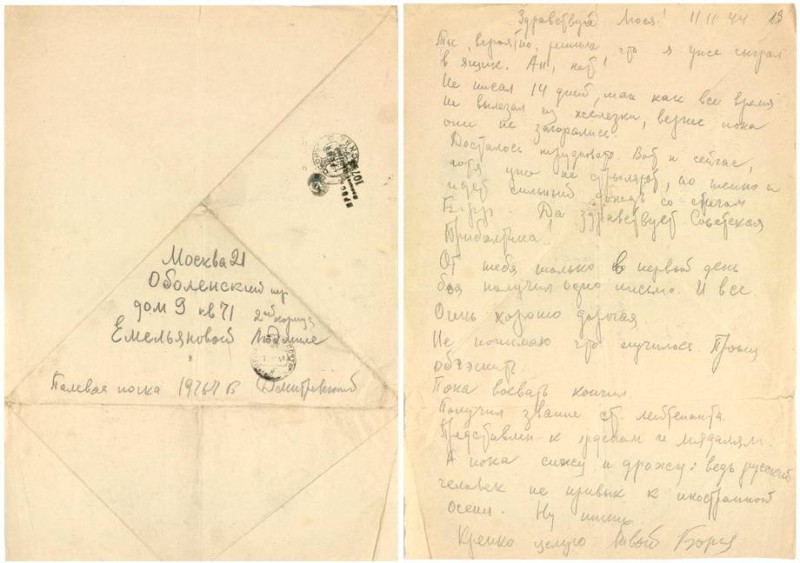 Москва 21
Оболенский пер
дом 9 кв 71
2ой корпус
Емельяновой Людмиле
Полевая почта В Дмитровский
Здравствуй Люся! 11.10.44
Ты, вероятно, решила что я уже сыграл
в ящик. Ан, нет!
Не писал 14 дней, так как все время
не вылезал из железки, вернее пока
они не загорались.
Досталось нам здорово. Вот и сейчас,
хотя уже не стреляют, но темно и
идет сильный дождь со снегом
Б.р.р.р. Да здравствует Советская
Прибалтика
От тебя только в первый день
боя получил одно письмо. И все.
Очень хорошо дорогая.
Не понимаю что случилось. Прошу
объяснить
Пока воевать кончил
Получил звание ст лейтенанта.
Представлен к орденам и медалям.
А пока сижу и дрожу: ведь русский
человек не привык к иностранной
осени. Ну пиши
Крепко целую Твой Боря